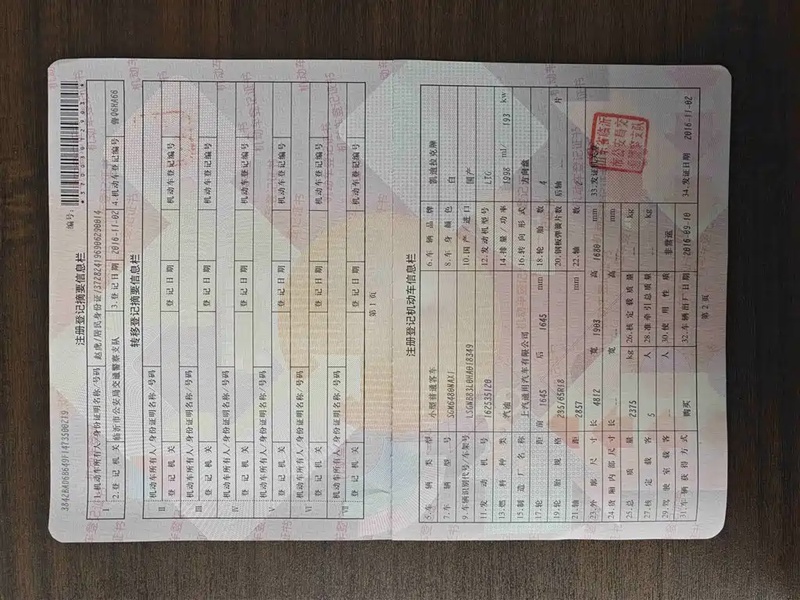 编号:
注册登记摘要信息栏
Ⅰ 1.机动车所有人/身份证明名称/号码 赵虎/居民身份证/372824196906290014
2.登记机关 临沂市公安局交通警察支队 3.登记日期 2016-11-02 4.机动车登记编号 鲁Q6HA66
转移登记摘要信息栏
Ⅱ 机动车所有人/身份证明名称/号码
登记机关 登记日期 机动车登记编号
Ⅲ 机动车所有人/身份证明名称/号码
登记机关 登记日期 机动车登记编号
Ⅳ 机动车所有人/身份证明名称/号码
登记机关 登记日期 机动车登记编号
Ⅴ 机动车所有人/身份证明名称/号码
登记机关 登记日期 机动车登记编号
Ⅵ 机动车所有人/身份证明名称/号码
登记机关 登记日期 机动车登记编号
Ⅶ 机动车所有人/身份证明名称/号码
登记机关 登记日期 机动车登记编号
第 1 页
注册登记机动车信息栏
5.车辆类型 小型普通客车 6.车辆品牌 凯迪拉克牌
7.车辆型号 SGM6480MAX1 8.车身颜色 白
9.车辆识别代号/车架号 LSGNB83L0HA018349 10.国产/进口 国产
11.发动机号 162535120 12.发动机型号 LTG
13.燃料种类 汽油 14.排量/功率 1998 ml/ 193 kw
15.制造厂名称 上汽通用汽车有限公司 16.转向形式 方向盘
17.轮距 前 1645 后 1645 mm 18.轮胎数 4
19.轮胎规格 235/65R18 20.钢板弹簧片数 后轴 片
21.轴距 2857 mm 22.轴数 2
23.外廓尺寸 长 4812 宽 1903 高 1680 mm
24.货厢内部尺寸 长 宽 高 mm
25.总质量 2375 kg 26.核定载质量 kg
27.核定载客 5 人 28.准牵引总质量 kg
29.驾驶室载客 人 30.使用性质 非营运
31.车辆获得方式 购买 32.车辆出厂日期 2016-09-10
33.发证机关
34.发证日期 2016-11-02
第 2 页